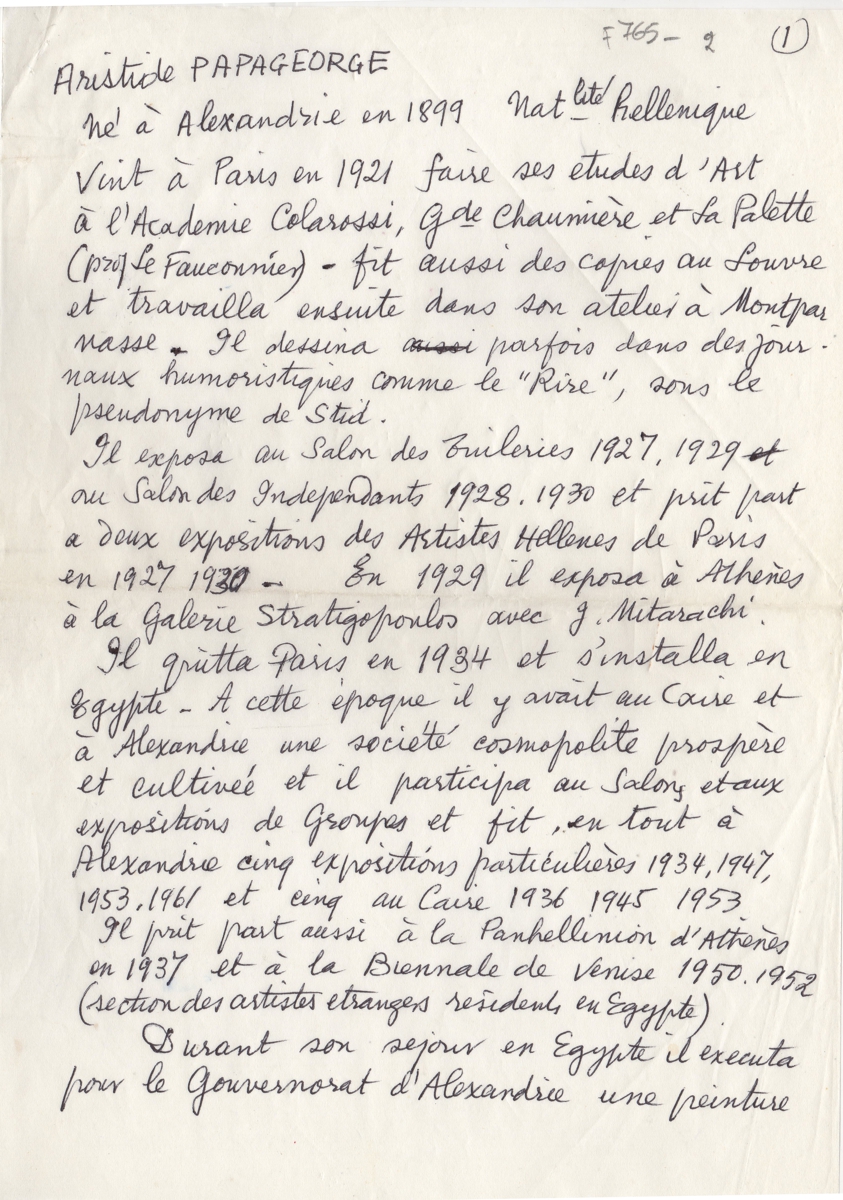 F765- 2 (1)
Aristide PAPAGEORGE
Né à Alexandrie en 1899 Nat lité hellenique
Vint à Paris en 1921 faire ses etudes d'Art
à l'Academie Colarossi, Gde Chaumière et La Palette
(prof Le Fauconnier) - fit aussi des copies au Louvre
et travailla ensuite dans son atelier à Montpar
nasse. Il dessina aussi parfois dans des jour-
naux humoristiques comme le "Rire", sous le
pseudonyme de Stid.
Il exposa au Salon des Tuileries 1927, 1929 et
au Salon des Independants 1928. 1930 et prit part
a deux expositions des Artistes Hellenes de Paris
en 1927 1930 - En 1929 il exposa à Athènes
à la Galerie Stratigopoulos avec g. Mitarachi.
Il quitta Paris en 1934 et s'installa en
Egypte - A cette époque il y avait au Caire et
à Alexandrie une société cosmopolite prospère
et cultiveé et il participa au Salons et aux
expositions de Groupes et fit, en tout à
Alexandrie cinq expositions particulières 1934, 1947,
1953. 1961 et cinq au Caire 1936 1945 1953
Il prit part aussi à la Panhellinion d'Athènes
en 1937 et à la Biennale de Venise 1950. 1952
(section des artistes etrangers residents en Egypte)
Durant son sejour en Egypte il executa
pour le Gouvernorat d'Alexandrie une peinture